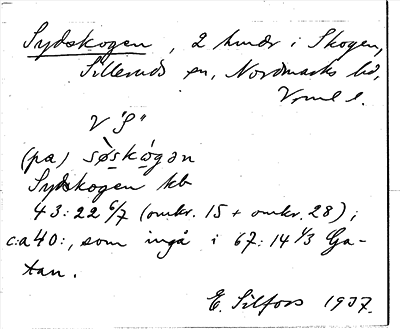 Sydskogen, 2 hmdr i Skogen,
Silleruds sn, Nordmarks hd,
Vrml l.
V "S"
(på) sø̀skógən
Sydskogen kb
43:22 6/7 (omkr. 15 + omkr. 28);
c:a 40:, som ingå i 67:14 1/3 Ga-
tan.
E. Silfors 1937.